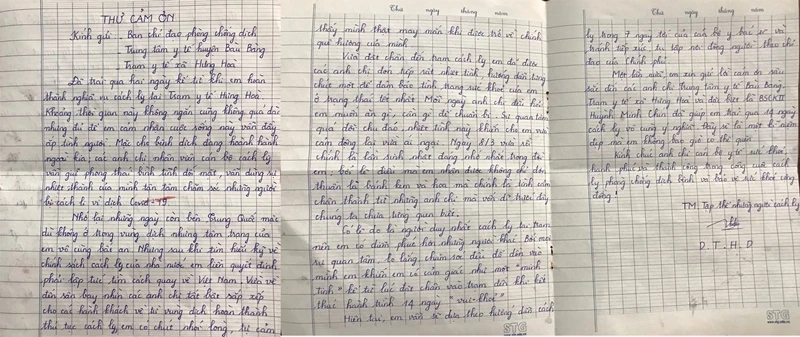 THƯ CẢM ƠN
Kính gửi: - Ban chỉ đạo phòng chống dịch
Trung tâm y tế huyện Bàu Bàng
Trạm y tế xã Hưng Hoà
Đã trải qua hai ngày kể từ khi em hoàn
thành nghĩa vụ cách ly tại Trạm y tế Hưng Hoà.
Khoảng thời gian này không ngắn cũng không quá dài
nhưng đủ để em cảm nhận cuộc sống này vẫn đầy
ắp tình người. Mặc cho bệnh dịch đang hoành hành
ngoài kia; các anh chị nhân viên cán bộ cách ly
vẫn giữ phong thái bình tĩnh đối mặt, vẫn dùng sự
nhiệt thành của mình tận tâm chăm sóc những người
bị cách li vì dịch Covid-19.
Nhớ lại những ngày còn bên Trung Quốc mặc
dù không ở trong vùng dịch nhưng tâm trạng của
em vô cùng bất an. Nhưng sau khi tìm hiểu kỹ về
chính sách cách ly của nhà nước em liền quyết định
phải lập tức tìm cách quay về Việt Nam. Vừa về
đến sân bay nhìn các anh chị tất bật sắp xếp
cho các hành khách về từ vùng dịch hoàn thành
thủ tục cách ly, em có chút nhói lòng, tự cảm
Thứ ngày tháng năm
thấy mình thật may mắn khi được trở về chính
quê hương của mình.
Vừa đặt chân đến trạm cách ly em đã được
các anh chị đón tiếp rất nhiệt tình, hướng dẫn từng
chút một để đảm bảo tình trạng sức khoẻ của em
ở trạng thái tốt nhất. Mỗi ngày anh chị đều hỏi
em muốn ăn gì, cần gì để chuẩn bị. Sự quan tâm
quá đỗi chu đáo, nhiệt tình này khiến cho em vừa
cảm động lại vừa ái ngại. Ngày 8/3 vừa rồi
chính là lần sinh nhật đáng nhớ nhất trong đời
em; bởi lẽ điều mà em nhận được không chỉ đơn
thuần là bánh kem và hoa mà chính là tình cảm
chân thành từ những anh chị mà vốn dĩ trước đây
chúng ta chưa từng quen biết.
Có lẽ do là người duy nhất cách ly tại trạm
nên em có diễm phúc hơn những người khác. Bởi mọi
sự quan tâm, lo lắng, chăm sóc đều đổ dồn vào
mình em khiến em có cảm giác như một "minh
tinh" kể từ lúc đặt chân vào trạm đến khi kết
thúc hành trình 14 ngày "vui-khoẻ".
Hiện tại, em vẫn sẽ dựa theo hướng dẫn cách
Thứ ngày tháng năm
ly trong 7 ngày tới của cán bộ y bác sĩ và
tránh tiếp xúc, tụ tập nơi đông người theo chỉ
đạo của Chính phủ.
Một lần nữa, em xin gửi lời cảm ơn sâu
sắc đến các anh chị Trung tâm y tế Bàu Bàng,
Trạm y tế xã Hưng Hoà và đặt biệt là BSCKII
Huỳnh Minh Chín đã giúp em trải qua 14 ngày
cách ly vô cùng ý nghĩa. Đây sẽ là một kỉ niệm
đẹp mà em không bao giờ có thể quên.
Kính chúc anh chị cán bộ y tế sức khoẻ,
hạnh phúc và thành công trong công cuộc cách
ly phòng chống dịch bệnh và bảo vệ sức khoẻ cộng
đồng!
TM. Tập thể những người cách ly
D T. H. D
STG
STG